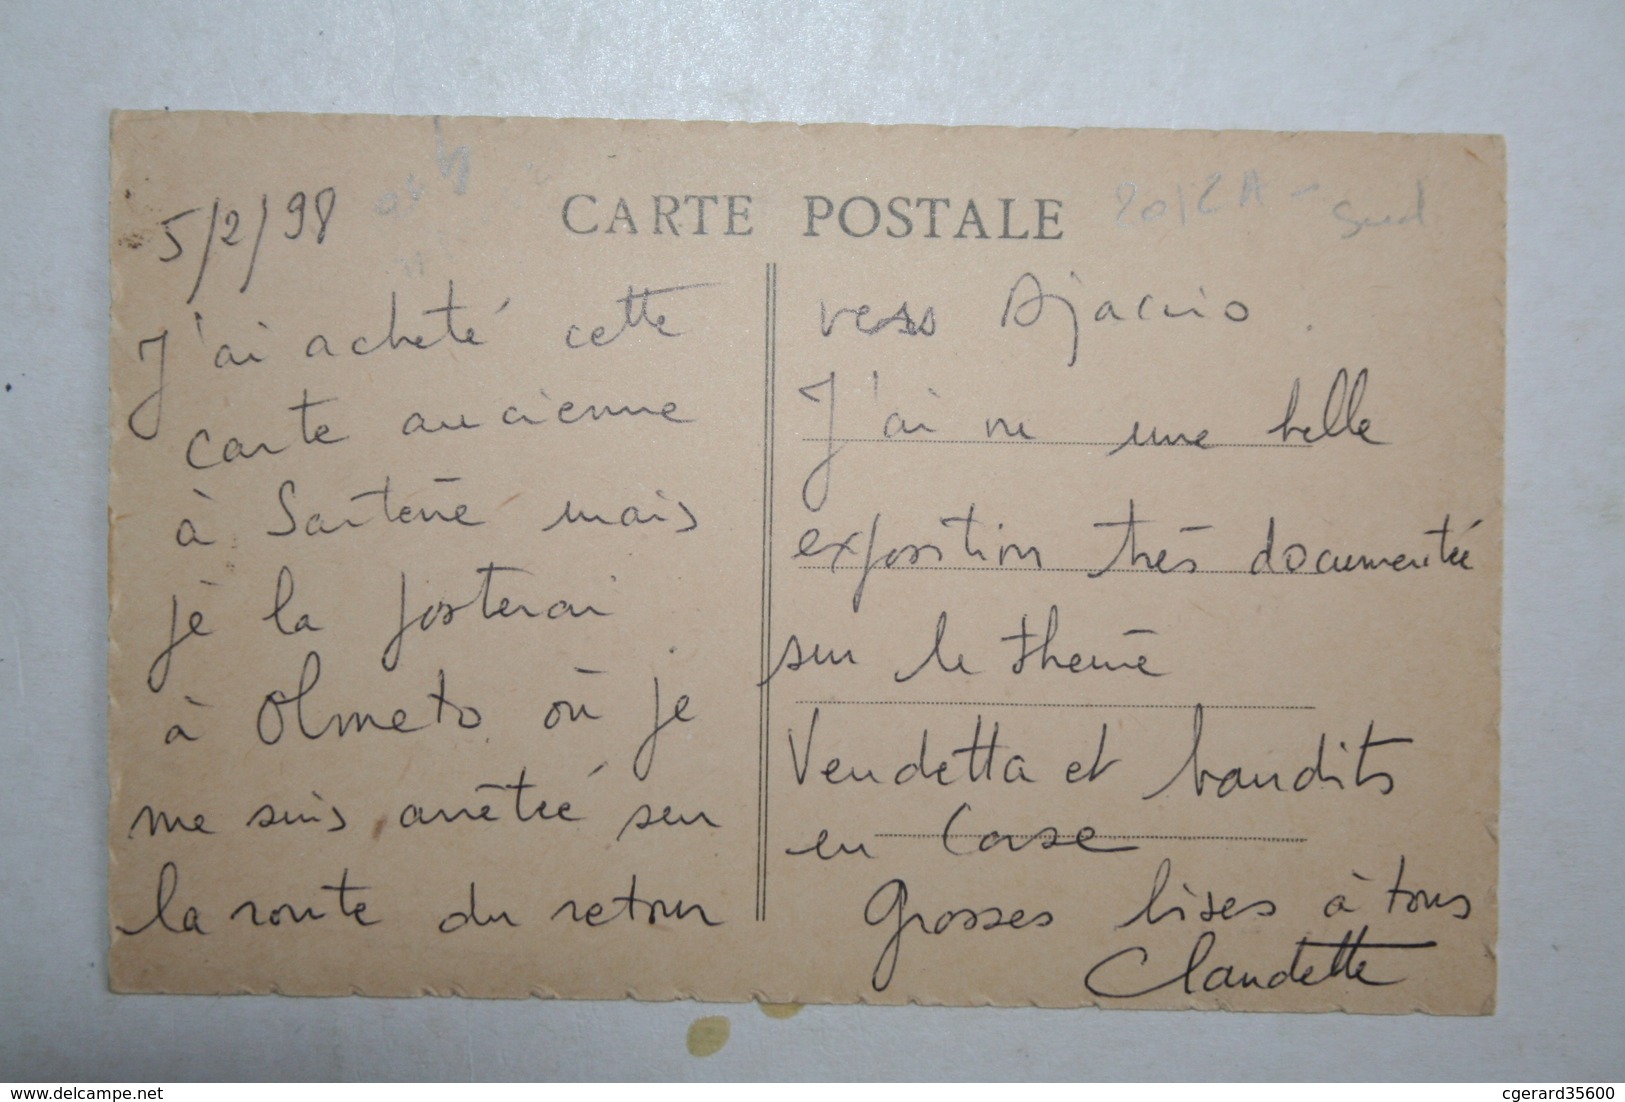 CARTE POSTALE
20/2A - Sud
5/2/98
J'ai acheté cette
carte ancienne
à Sartène mais
je la posterai
à Olmeto où je
me suis arrêtée sur
la route du retour
vers Ajaccio.
J'ai vu une belle
exposition très documentée
sur le thème
Vendetta et bandits
en Corse
Grosses bises à tous
Claudette
www.delcampe.net
cgerard35600